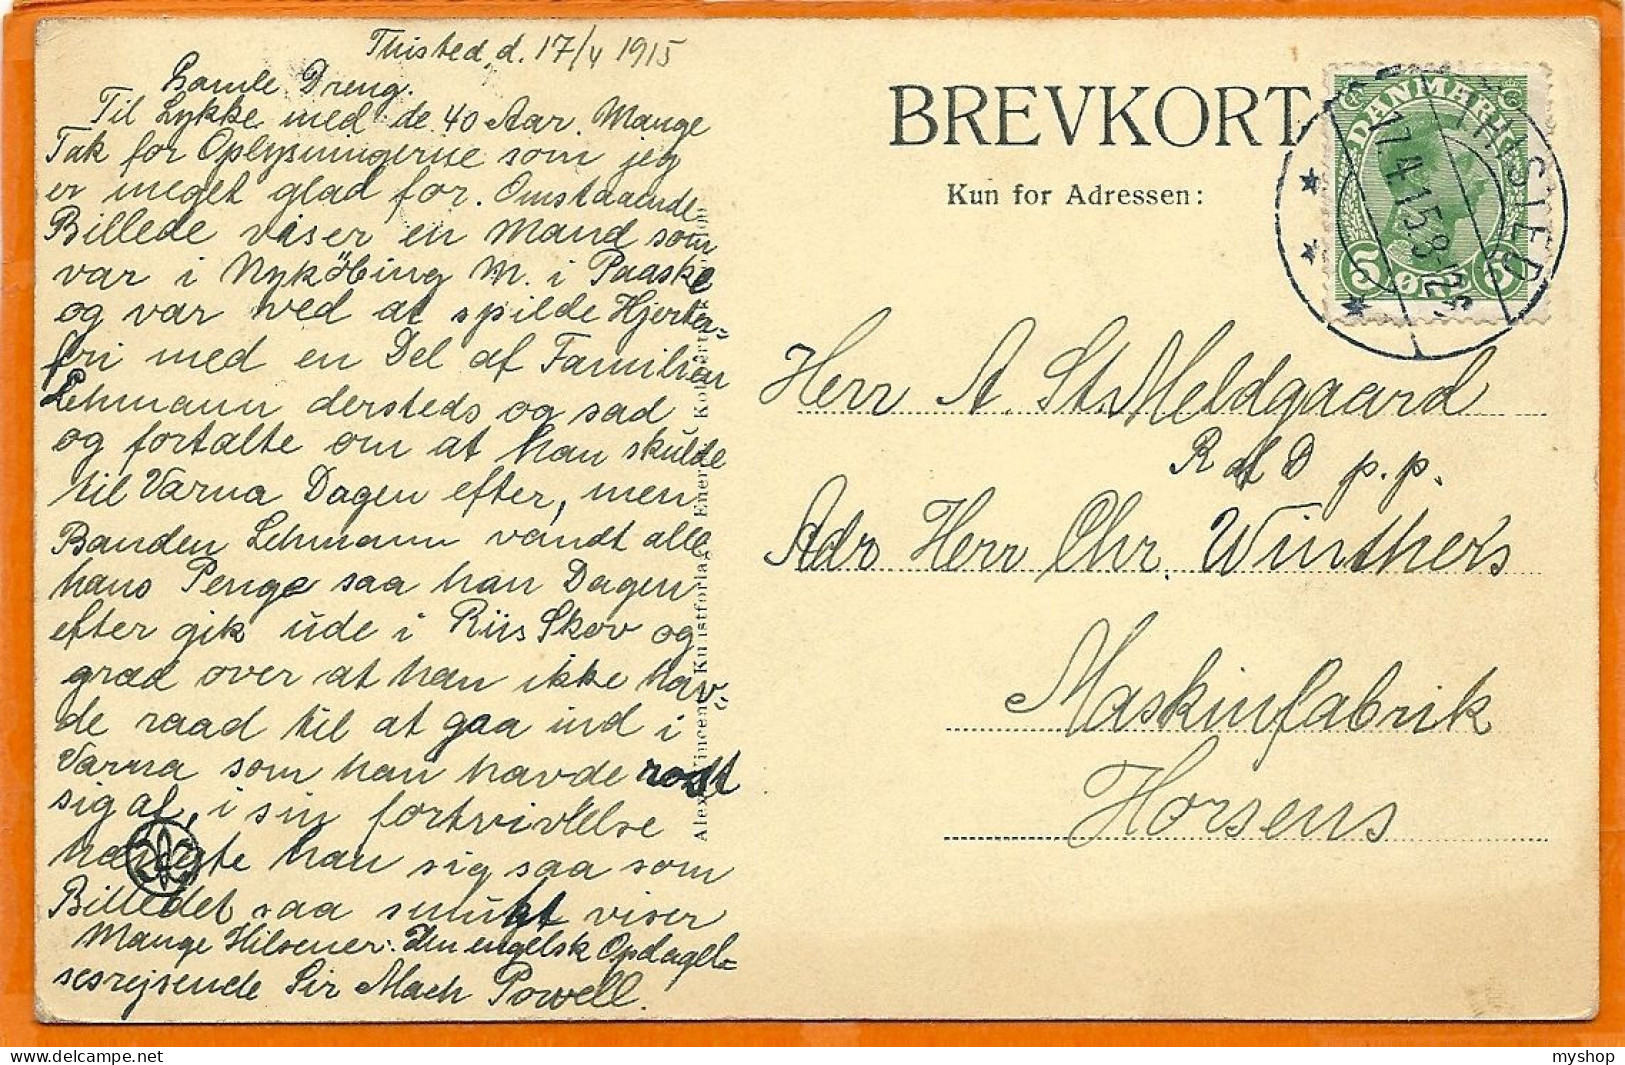 Thisted, d. 17/4 1915
Gamle Dreng.
Til Lykke med de 40 Aar. Mange
Tak for Oplysningerne som jeg
er meget glad for. Omstaaende
Billede viser en Mand som
var i Nyköbing M. i Paaske
og var ved at spilde Hjerter=
fri med en Del af Familien
Lehmann dersteds og sad
og fortalte om at han skulde
til Varna Dagen efter, men
Banden Lehmann vandt alle
hans Penge saa han Dagen
efter gik ude i Riis Skov og
græd over at han ikke hav=
de raad til at gaa ind i
Varna som han havde rost
sig af, i sin fortvivlelse
hængte han sig saa som
Billedet saa smukt viser
Mange Hilsener. Den engelsk Opdagel=
sesrejsende Sir Mach Powell.
BREVKORT
Kun for Adressen:
DANMARK
5 ØRE 5
THISTED
17.4.15.8-12
Herr A. St. Meldgaard
R af D p.p.
Adr Herr Chr. Winther's
Maskinfabrik
Horsens
Alex Vincent Kunstforlag Eneret
myshop